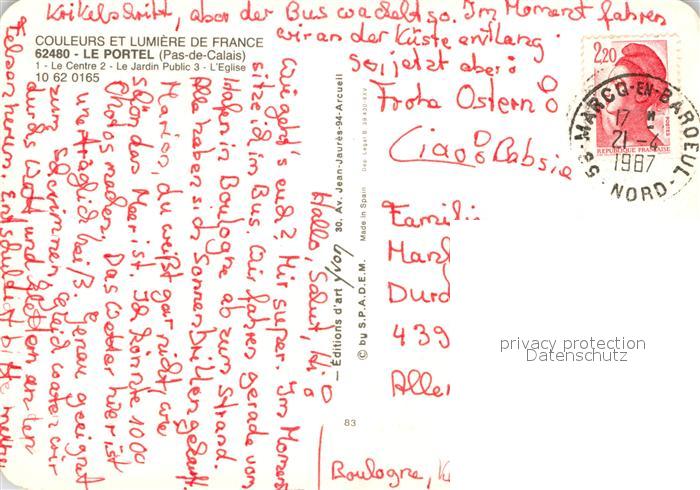 Krikelschrift, aber der Bus wackelt so. Im Moment fahren
wir an der Küste entlang.
Sei jetzt aber:
Frohe Ostern
Ciao Babsie
COULEURS ET LUMIÈRE DE FRANCE
62480 - LE PORTEL (Pas-de-Calais)
1 - Le Centre 2 - Le Jardin Public 3 - L'Eglise
10 62 0165
Hallo, Salut, Hi
Wie geht's euch? Mir super. Im Moment
sitze ich im Bus. Wir fahren gerade vom
in Boulogne ab zum Strand.
Alle haben sich Sonnenbrillen gekauft.
Marion, du weißt gar nicht, wie
schön das Meer ist. Ich könnte 1000
Photos machen. Das Wetter hier ist
unerträglich heiß. Genau geeignet
zum Schwimmen. Gleich waten wir
durchs Watt und klettern an den
Felsen herum. Entschuldigt bitte meine
Editions d'art Yvon 30, Av. Jean-Jaurès-94-Arcueil
© by S.P.A.D.E.M. Made in Spain
83
2,20
REPUBLIQUE FRANÇAISE
59-MARCQ-EN-BARŒUL
17 H
21-4
1987
NORD
Famili
Durd
439
Aller
Boulogne,
privacy protection
Datenschutz